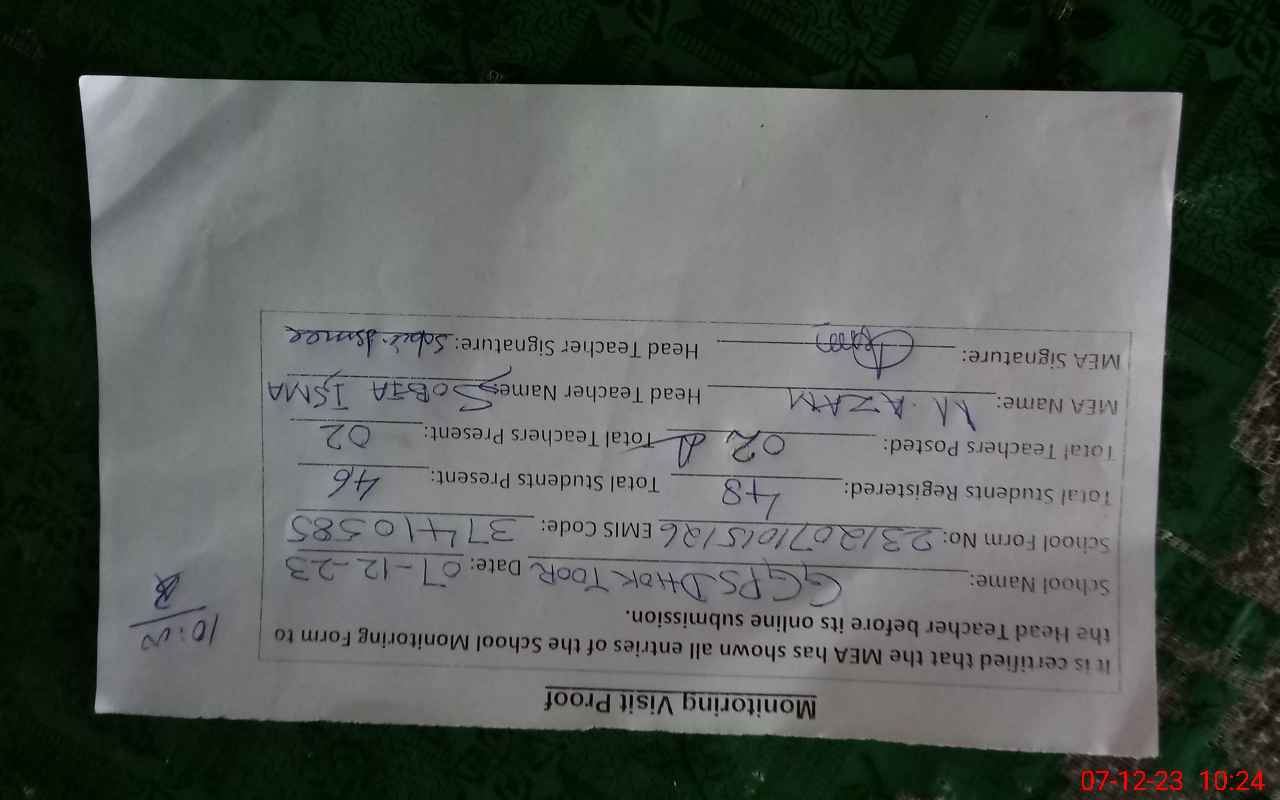 Monitoring Visit Proof
It is certified that the MEA has shown all entries of the School Monitoring Form to
the Head Teacher before its online submission.
10:00
School Name: GGPS DHOK TOOR Date: 07-12-23
School Form No: 231207101515126 EMIS Code: 37410585
Total Students Registered: 48 Total Students Present: 46
Total Teachers Posted: 02 Total Teachers Present: 02
MEA Name: M. AZAM Head Teacher Name: SOBIA ISMA
MEA Signature: Head Teacher Signature:
07-12-23 10:24